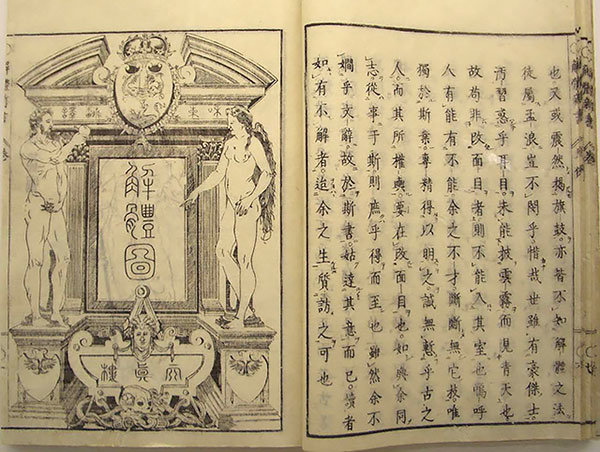 也又或震然揭旗鼓亦皆不如解體之法
徒屬孟浪豈不閔乎惜哉世雖有豪傑士
汚習惑乎耳目未能披雲霧而見青天也
故苟非改面目者則不能入其室也嗚呼
人有能有不能余之不才斷斷無它故唯
獨於斯業專精得以明之誠無慙乎古之
人而其所權輿要在改面目也如與余同
志從事于斯則庶乎得而至也雖然余不
嫺乎文辭故於斯書姑達其意而已請者
如有不解者迨余之生質訪之可也
解體圖
天眞樓